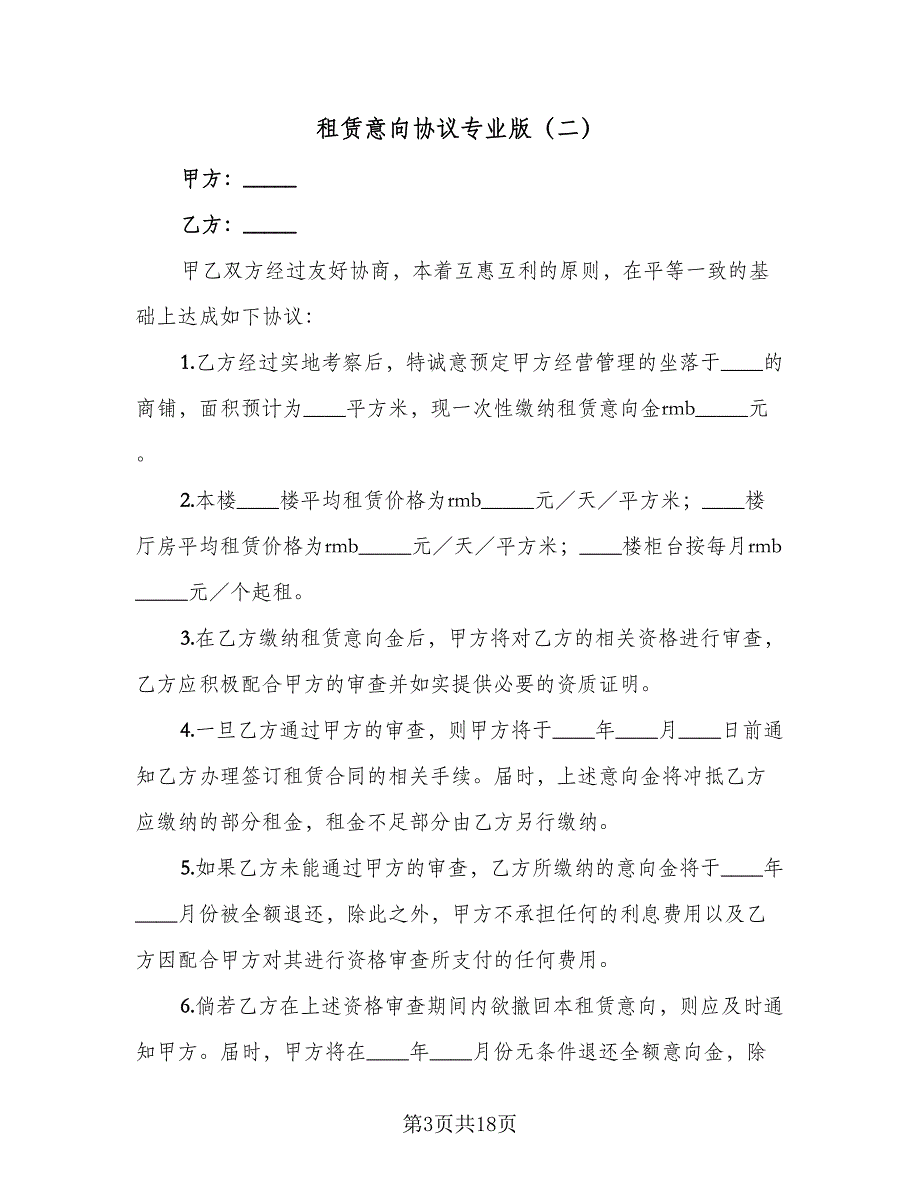 租赁意向协议专业版（二）
甲方：_____
乙方：_____
甲乙双方经过友好协商，本着互惠互利的原则，在平等一致的基
础上达成如下协议：
1.乙方经过实地考察后，特诚意预定甲方经营管理的坐落于____的
商铺，面积预计为____平方米，现一次性缴纳租赁意向金rmb_____元
。
2.本楼____楼平均租赁价格为rmb_____元／天／平方米；____楼
厅房平均租赁价格为rmb_____元／天／平方米；____楼柜台按每月rmb
_____元／个起租。
3.在乙方缴纳租赁意向金后，甲方将对乙方的相关资格进行审查，
乙方应积极配合甲方的审查并如实提供必要的资质证明。
4.一旦乙方通过甲方的审查，则甲方将于____年____月____日前通
知乙方办理签订租赁合同的相关手续。届时，上述意向金将冲抵乙方
应缴纳的部分租金，租金不足部分由乙方另行缴纳。
5.如果乙方未能通过甲方的审查，乙方所缴纳的意向金将于____年
____月份被全额退还，除此之外，甲方不承担任何的利息费用以及乙
方因配合甲方对其进行资格审查所支付的任何费用。
6.倘若乙方在上述资格审查期间内欲撤回本租赁意向，则应及时通
知甲方。届时，甲方将在____年____月份无条件退还全额意向金，除
第3页共18页